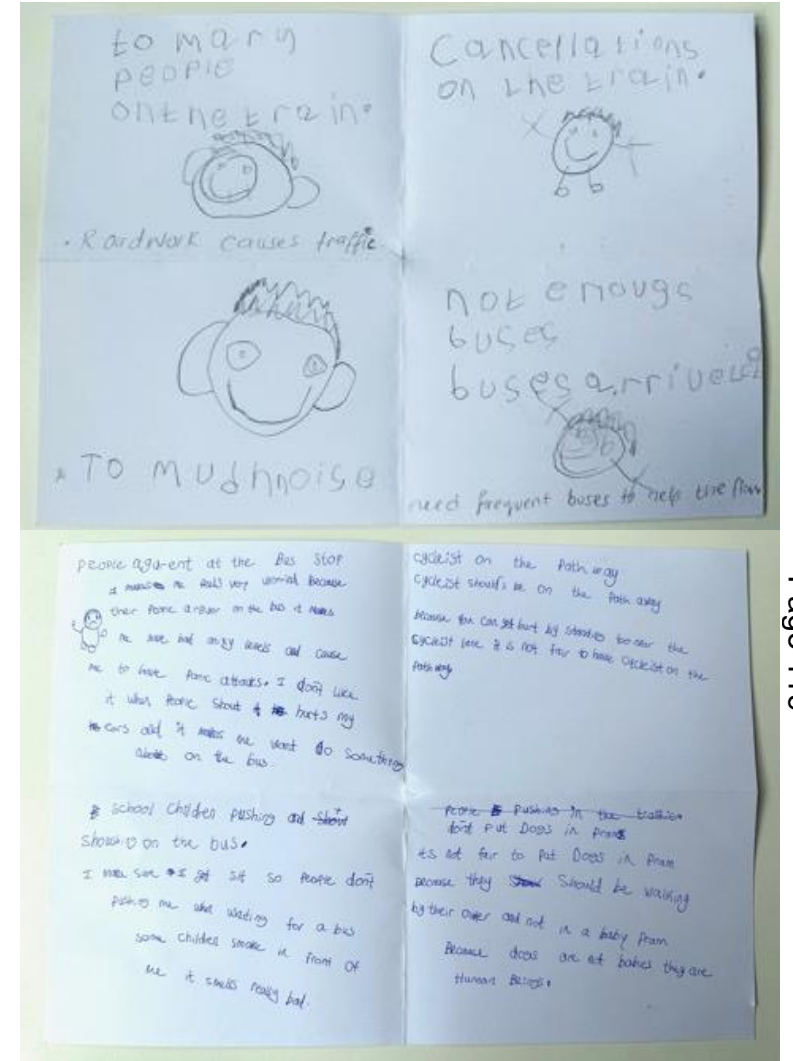 to many
people
on the train.
• Roadwork causes traffic
Cancellations
on the train.
* TO MUDHnoise
not enougs
buses
buses arrive
need frequent buses to help the flow
PEOPLE agurent at the Bus STOP
me feels very worried because
their People arguer on the bus it makes
me have bad anxy levels and cause
me to have Panic attacks. I don't Like
it when People Shout it hurts my
ears and it makes me want do something
on the bus.
School Children pushing and
Shouting on the bus.
I make sure I get sit so People don't
Pushing me when waiting for a bus
some Childen smoke in front of
me it smells really bad.
Cycleist on the Path way
Cycleist should's be on the Path away
because You can get hurt by Standing too near the
Cycleist lane it is not fair to have Cycleist on the
Path way
People Pushing in the traffic.
don't Put Dogs in Prams
its not fair to Put Dogs in Pram
because they Should be Walking
by their Owner and not in a baby Pram
Because dogs are not babies they are
Human Beings.